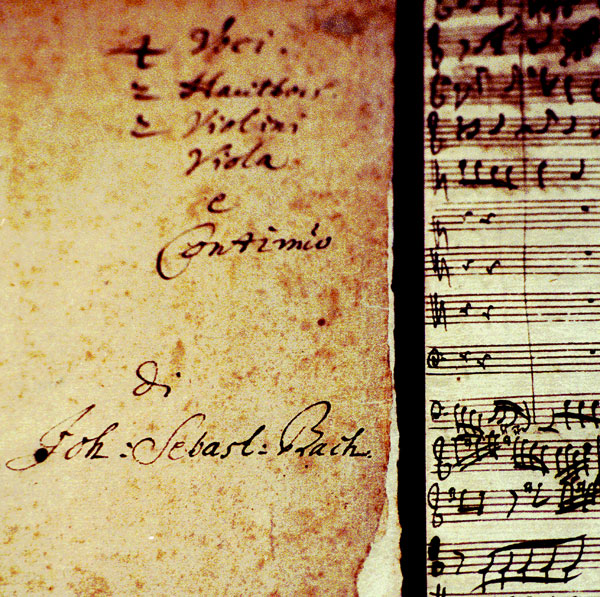 4 Voci.
2 Hautbois.
2 Violini
Viola
e
Continuo
di
Joh: Sebast: Bach.